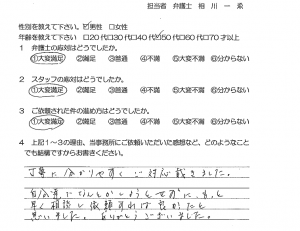 担当者 弁護士 相川 一
性別を教えて下さい。 ☑男性 □女性
年齢を教えて下さい □20代□30代□40代☑50代□60代□70才以上
1 弁護士の応対はどうでしたか。
①大変満足 ②満足 ③普通 ④不満 ⑤大変不満 ⑥分からない
2 スタッフの応対はどうでしたか。
①大変満足 ②満足 ③普通 ④不満 ⑤大変不満 ⑥分からない
3 ご依頼された件の進め方はどうでしたか。
①大変満足 ②満足 ③普通 ④不満 ⑤大変不満 ⑥分からない
4 上記1～3の理由、当事務所にご依頼いただいた感想など、どのようなことでも結構ですからお書きください。
丁寧に分かりやすくご対応戴きました。
自分達でなんとかしようとせずに、もっと
早く相談し依頼すれば良かったと
思いました。ありがとうございました。